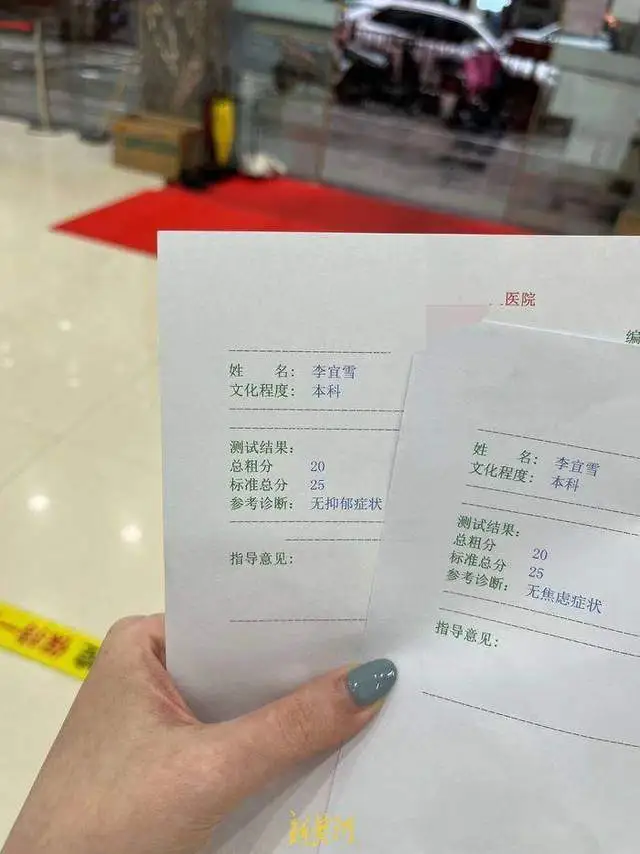 医院
编
姓 名: 李宜雪
文化程度: 本科
测试结果:
总粗分 20
标准总分 25
参考诊断: 无抑郁症状
指导意见:
姓 名: 李宜雪
文化程度: 本科
测试结果:
总粗分 20
标准总分 25
参考诊断: 无焦虑症状
指导意见: